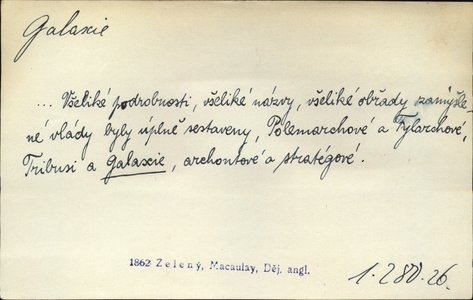 Galaxie
... Všeliké podrobnosti, všeliké názvy, všeliké obřady zamýšle-
né vlády byly úplně sestaveny, Polemarchové a Fylarchové,
Tribusi a Galaxie, archontové a stratégové.
1862 Zelený, Macaulay, Děj. angl.
1.280.26.